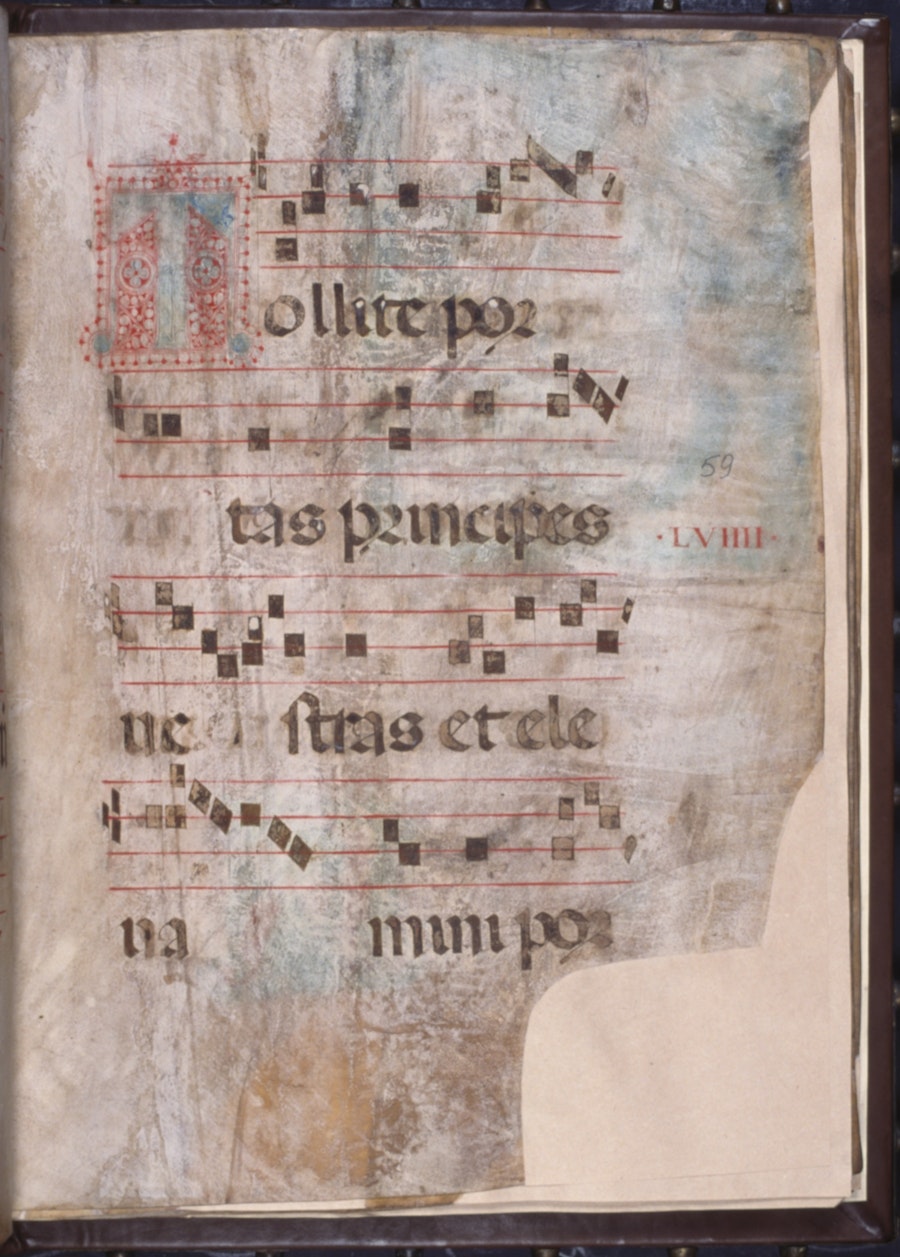 Tollite por
tas principes
59
·LVIIII·
ue stras et ele
ua mini por